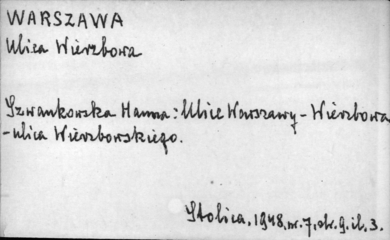 WARSZAWA
Ulica Wierzbowa
Szwankowska Hanna: Ulice Warszawy - Wierzbowa
- ulica Wierzborskiego.
Stolica, 1948, nr. 7, str. 9. il. 3.